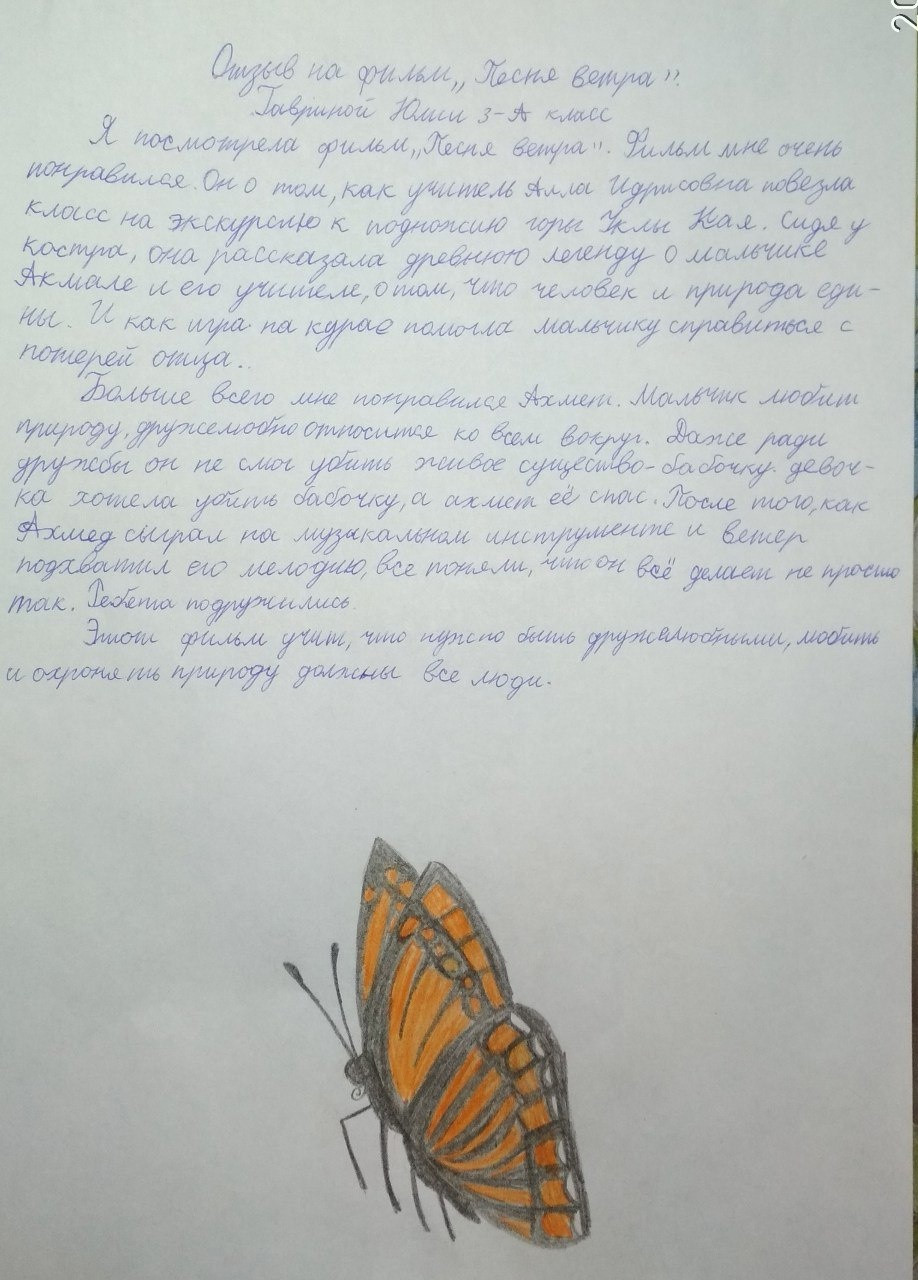 Отзыв на фильм „Песня ветра".
Гавриной Юлии 3-А класс
Я посмотрела фильм „Песня ветра". Фильм мне очень
понравился. Он о том, как учитель Алла Идрисовна повезла
класс на экскурсию к подножию горы Уклы Кая. Сидя у
костра, она рассказала древнюю легенду о мальчике
Акмале и его учителе, о том, что человек и природа еди-
ны. И как игра на курае помогла мальчику справиться с
потерей отца..
Больше всего мне понравился Ахмет. Мальчик любит
природу, дружелюбно относится ко всем вокруг. Даже ради
дружбы он не смог убить живое существо-бабочку. девоч-
ка хотела убить бабочку, а ахмет её спас. После того, как
Ахмед сыграл на музыкальном инструменте и ветер
подхватил его мелодию, все поняли, что он всё делает не просто
так. Ребята подружились.
Этот фильм учит, что нужно быть дружелюбными, любить
и охронять природу должны все люди.
20